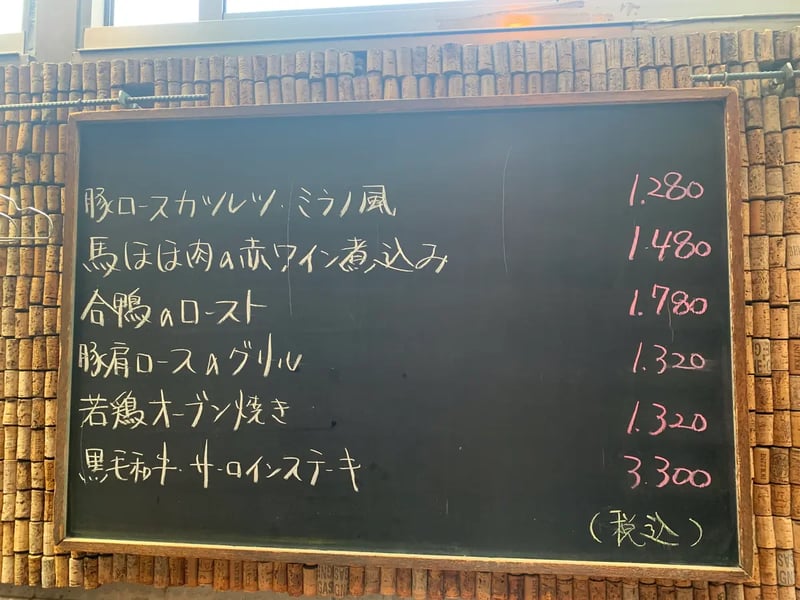 豚ロースカツレツ・ミラノ風 1.280
馬ほほ肉の赤ワイン煮込み 1.480
合鴨のロースト 1.780
豚肩ロースのグリル 1.320
若鶏オーブン焼き 1.320
黒毛和牛・サーロインステーキ 3.300
(税込)